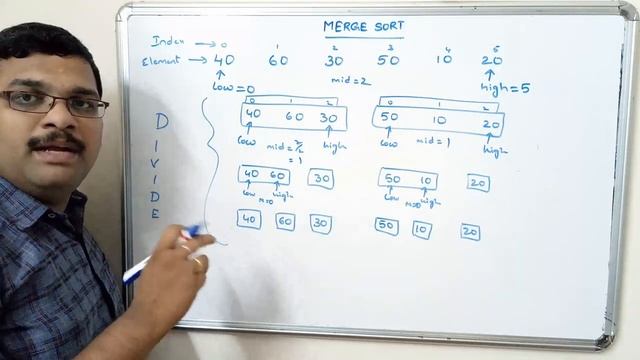 MERGE SORT
Index → 0 1 2 3 4 5
Element → 40 60 30 50 10 20
low = 0 mid = 2 high = 5
0 1 2 0 1 2
40 60 30 50 10 20
low mid = 2/2 high low mid = 1 high
= 1
40 60 30 50 10 20
low high low high
M=0 M=0
40 60 30 50 10 20
D
I
V
I
D
E